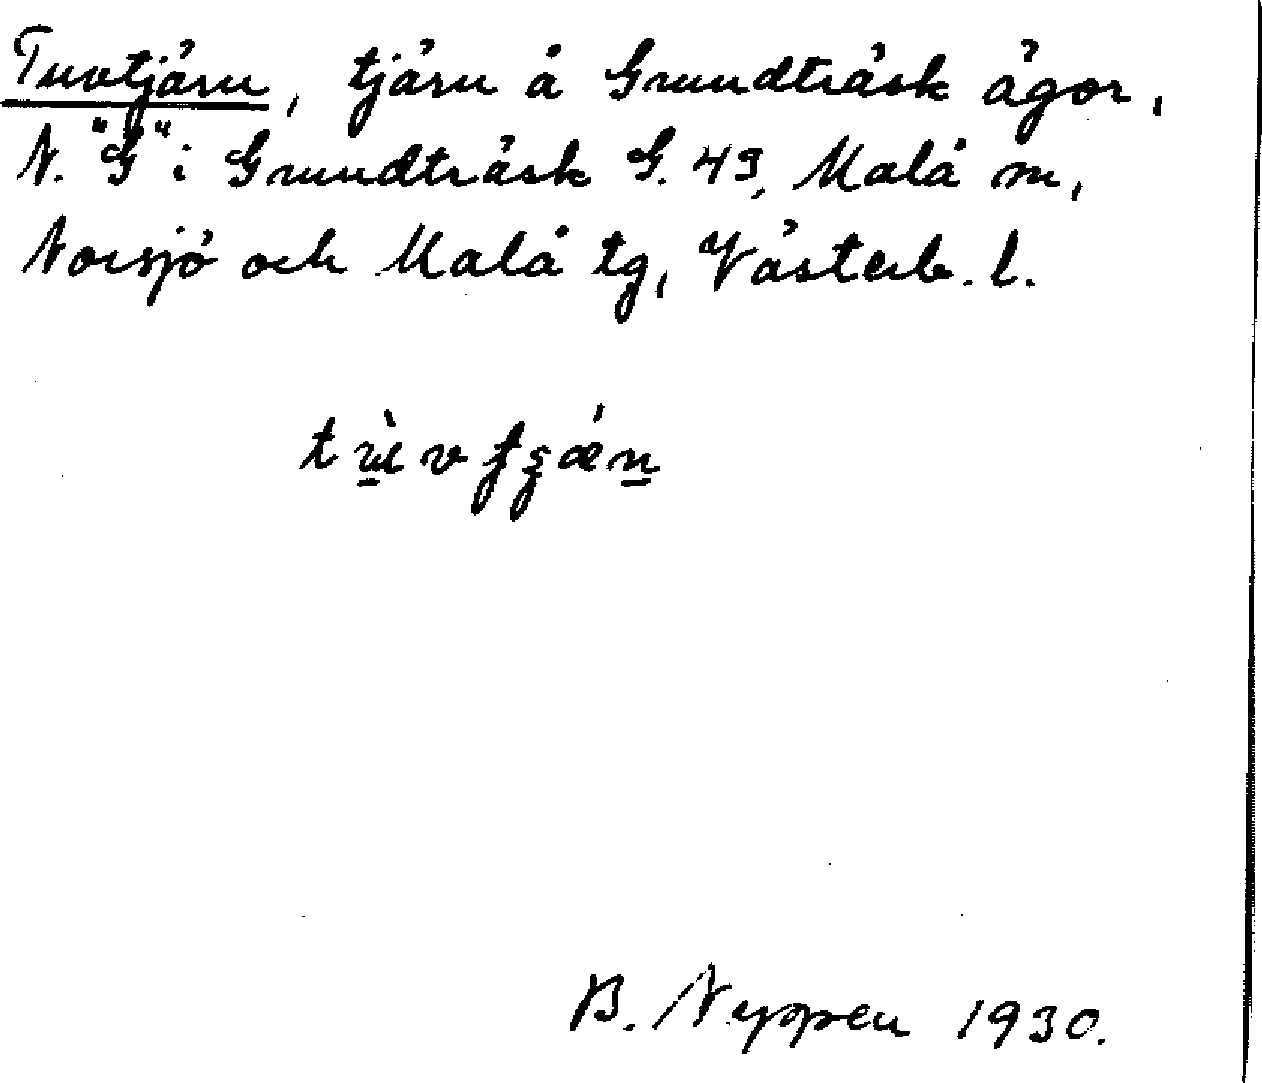 Tuvtjärn, tjärn å Grundträsk ägor,
N. "G" i Grundträsk G. 49, Malå sn,
Norsjö och Malå tg, Västerb. l.
B. Neppen 1930.